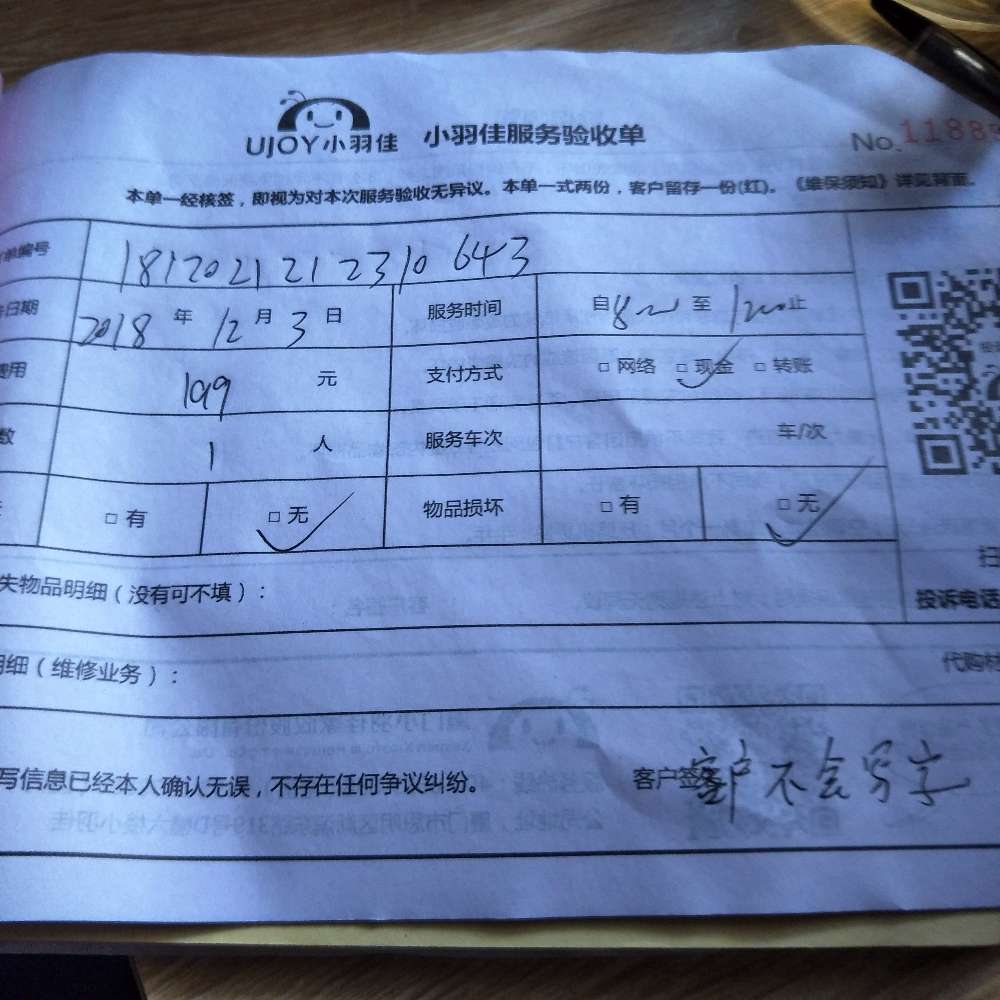 UJOY小羽佳 小羽佳服务验收单 No.1188
本单一经核签，即视为对本次服务验收无异议。本单一式两份，客户留存一份(红)。《维保须知》详见背面。
单编号 1812021212310643
日期 2018年12月3日 服务时间 自8 至12 止
费用 199 元 支付方式 □ 网络 □ 现金 □ 转账
数 1 人 服务车次 车/次
□ 有 □ 无 物品损坏 □ 有 □ 无
扫
失物品明细（没有可不填）： 投诉电话
明细（维修业务）： 代购材
写信息已经本人确认无误，不存在任何争议纠纷。 客户签名 客户不会写字